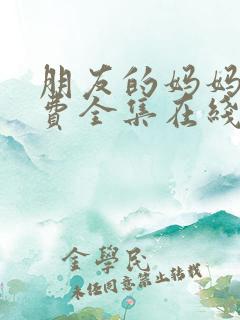 朋友的妈妈
费全集在线
金学民
未经同意禁止转载